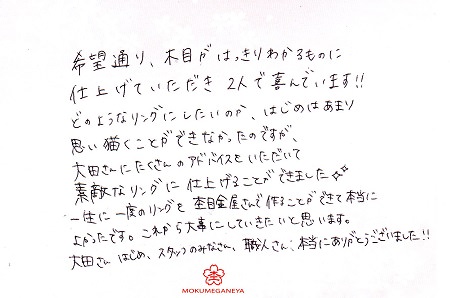 希望通り、木目がはっきりわかるものに
仕上げていただき 2人で喜んでいます!!
どのようなリングにしたいのか、はじめはあまり
思い描くことができなかったのですが、
太田さんにたくさんのアドバイスをいただいて
素敵なリングに仕上げることができました✨
一生に一度のリングを 杢目金屋さんで作ることができて本当に
よかったです。これから大事にしていきたいと思います。
太田さんはじめ、スタッフのみなさん、職人さん、本当にありがとうございました!!
杢
MOKUMEGANEYA